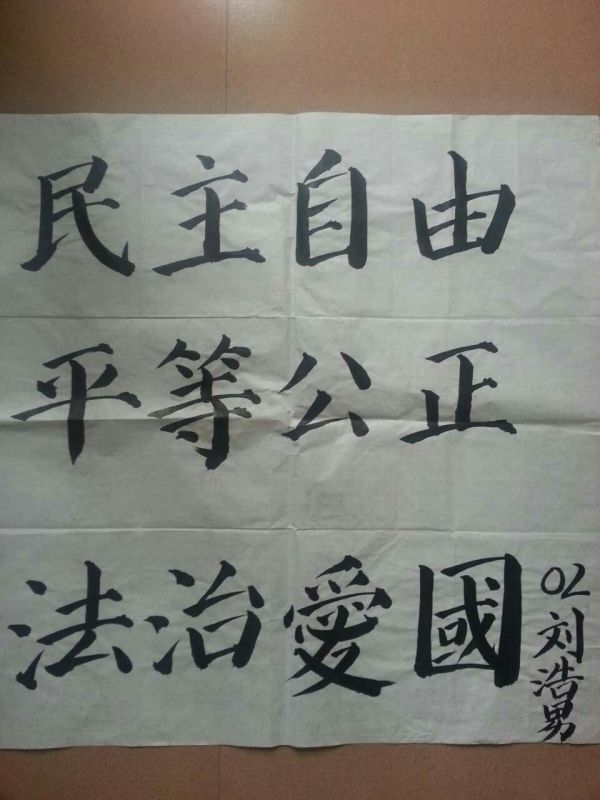 民主自由
平等公正
法治愛國
02刘浩男